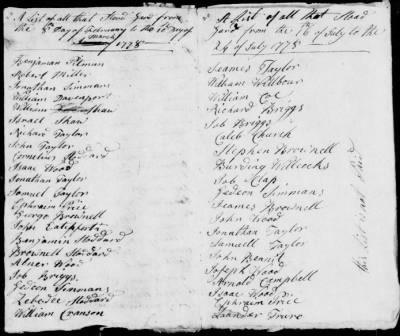 A List of all that Stood Gard from
the 8th Day of February to the 10 Day of
March
1778
Benjaman Tilman
Robert Miller
Jonathan Simmans
William Davenport
William
Israel Shaw
Richard Taylor
John Taylor
Cornelius Stoddard
Isaac Wood
Jonathan Taylor
Samuel Taylor
Ephraim Price
George Brownell
John
Benjamin Stoddard
Brownell Stoddard
Abner Wood
Job Briggs
Gedeon Simmans
Zebedee Stoddard
William Cranson
A List of all that Stood
Gard from the 16 of July to the
24 of July 1778
Jeames Taylor
William Willbour
William Coe
Richard Briggs
Job Briggs
Caleb Church
Stephen Brownell
Burding Willcocks
Job Clap
Gedeon Simmans
Jeames Brownell
John Wood
Jonathan Taylor
Samuell Taylor
John Bennit
Joseph Wood
Arnold Campbell
Isaac Wood Jr
Ephraim Price
this List is not Paid